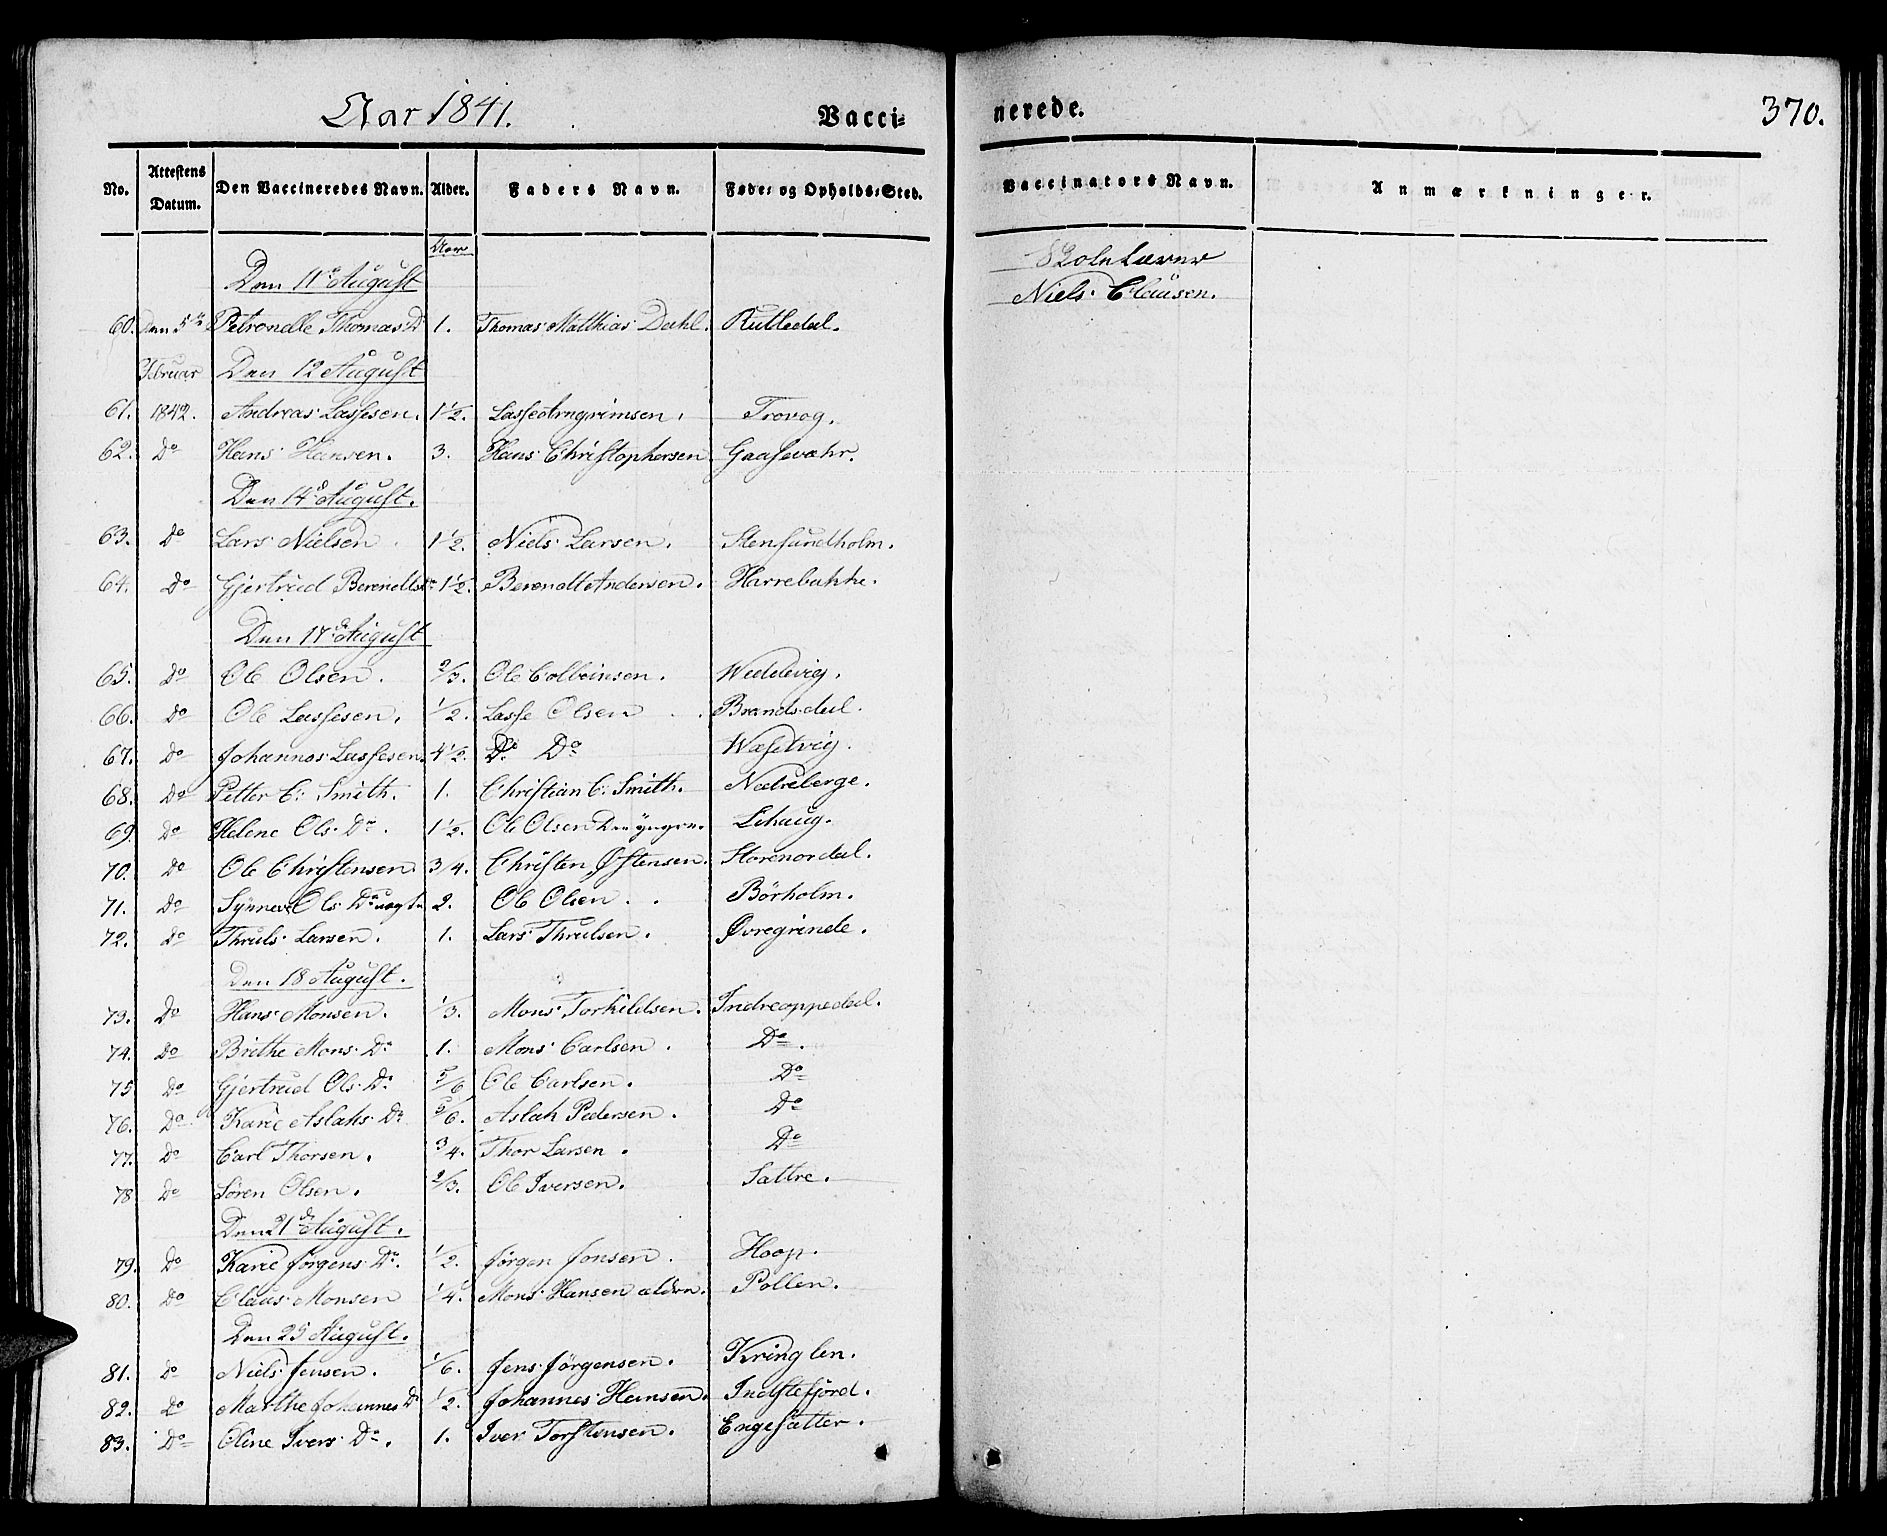 Aar 1841. Vacci= nerede. 370.
No. Attestens Datum. Den Vaccineredes Navn. Alder. Faders Navn. Føde= og Opholds=Sted. Vaccinators Navn. Anmærkninger.
Aar
Skolelærer
Den 11te August
Niels Clausen.
60. Den 5te Petronelle Thomas D 1. Thomas Matthias Dahl. Rutledal.
Februar Den 12 August
61. 1842. Andreas Lassesen. 1 1/2. Lasse Arngrimsen. Trovog.
62. Do Hans Hansen. 3. Hans Christophersen Gaasevæhr.
Den 14 August.
63. Do Lars Nielsen 1 1/2. Niels Larsen. Stensundholm.
64. Do Gjertrud Berendts 1 1/2. Berendt Andersen. Harrebakke.
Den 17de August
65. Do Ole Olsen. 2/3. Ole Colbeinsen. Weddevig.
66. Do Ole Lassesen. 1/2. Lasse Olsen Brandsdal.
67. Do Johannes Lassesen. 4 1/2. Do Do Wæsetvig.
68. Do Petter C: Smith. 1. Christian C: Smith. Nedreberge.
69. Do Helene Ols Dr. 1 1/2. Ole Olsen Den yngre. Lihaug.
70. Do Ole Christensen 3/4. Christen Østensen. Storenordal.
71. Do Synneve Ols 2. Ole Olsen. Børholm.
72. Do Thruls Larsen. 1. Lars Thrulsen. Øvregrinde.
Den 18 August.
73. Do Hans Monsen. 1/3. Mons Torkildsen. Indreoppedal.
74. Do Brithe Mons Dr 1. Mons Carlsen. Do.
75 Do Gjertrud Ols Dr 5/6 Ole Carlsen. Do
76. Do Karie Aslaks Dr 5/6. Aslak Pedersen. Do
77. Do Carl Thorsen. 3/4. Thor Larsen. Do
78 Do Søren Olsen. 2/3. Ole Iversen. Sattre.
Den 21de August.
79. Do Karie Jørgens Dr. 1/2. Jørgen Jonsen. Hoop.
80. Do Claus Monsen 1/4. Mons Hansen ældre. Pollen.
Den 25 August.
81. Do Niels Jensen. 1/6. Jens Jørgensen. Kringlen.
82. Do Marthe Johannes D 1/2. Johannes Hansen. Indstefjord.
83. Do Oline Ivers Dr. 1. Iver Torstensen. Engesætter.